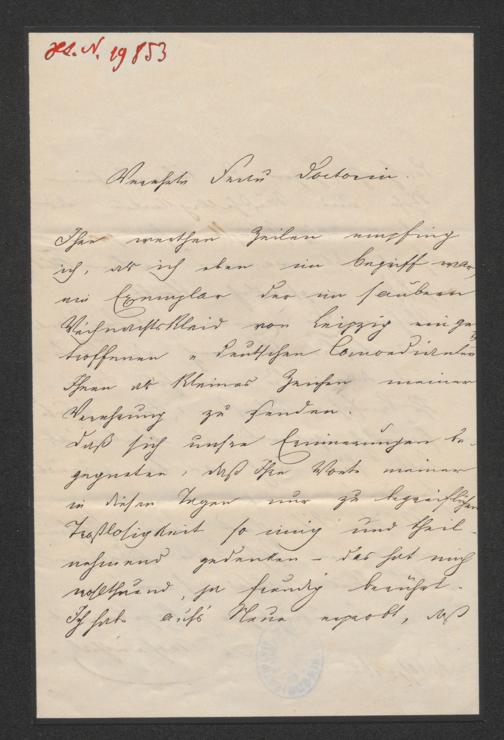 Hs. N. 19853
Verehrte Frau Doctorin.
Ihre werthen Zeilen empfing
ich, als ich eben im Begriff war
ein Exemplar der im saubern
Weihnachtskleid von Leipzig einge
troffenen "deutschen Comoedianten
Ihnen als kleines Zeichen meiner
Verehrung zu senden.
Daß sich unsre Erinnerungen be-
gegneten, daß Ihre Worte meiner
in diesen Tagen nur zu begreiflichen
Trostlosigkeit so innig und theil-
nehmend gedenken – das hat mich
wohlthuend, ja freudig berührt.
Ich habe auf's Neue erprobt, daß